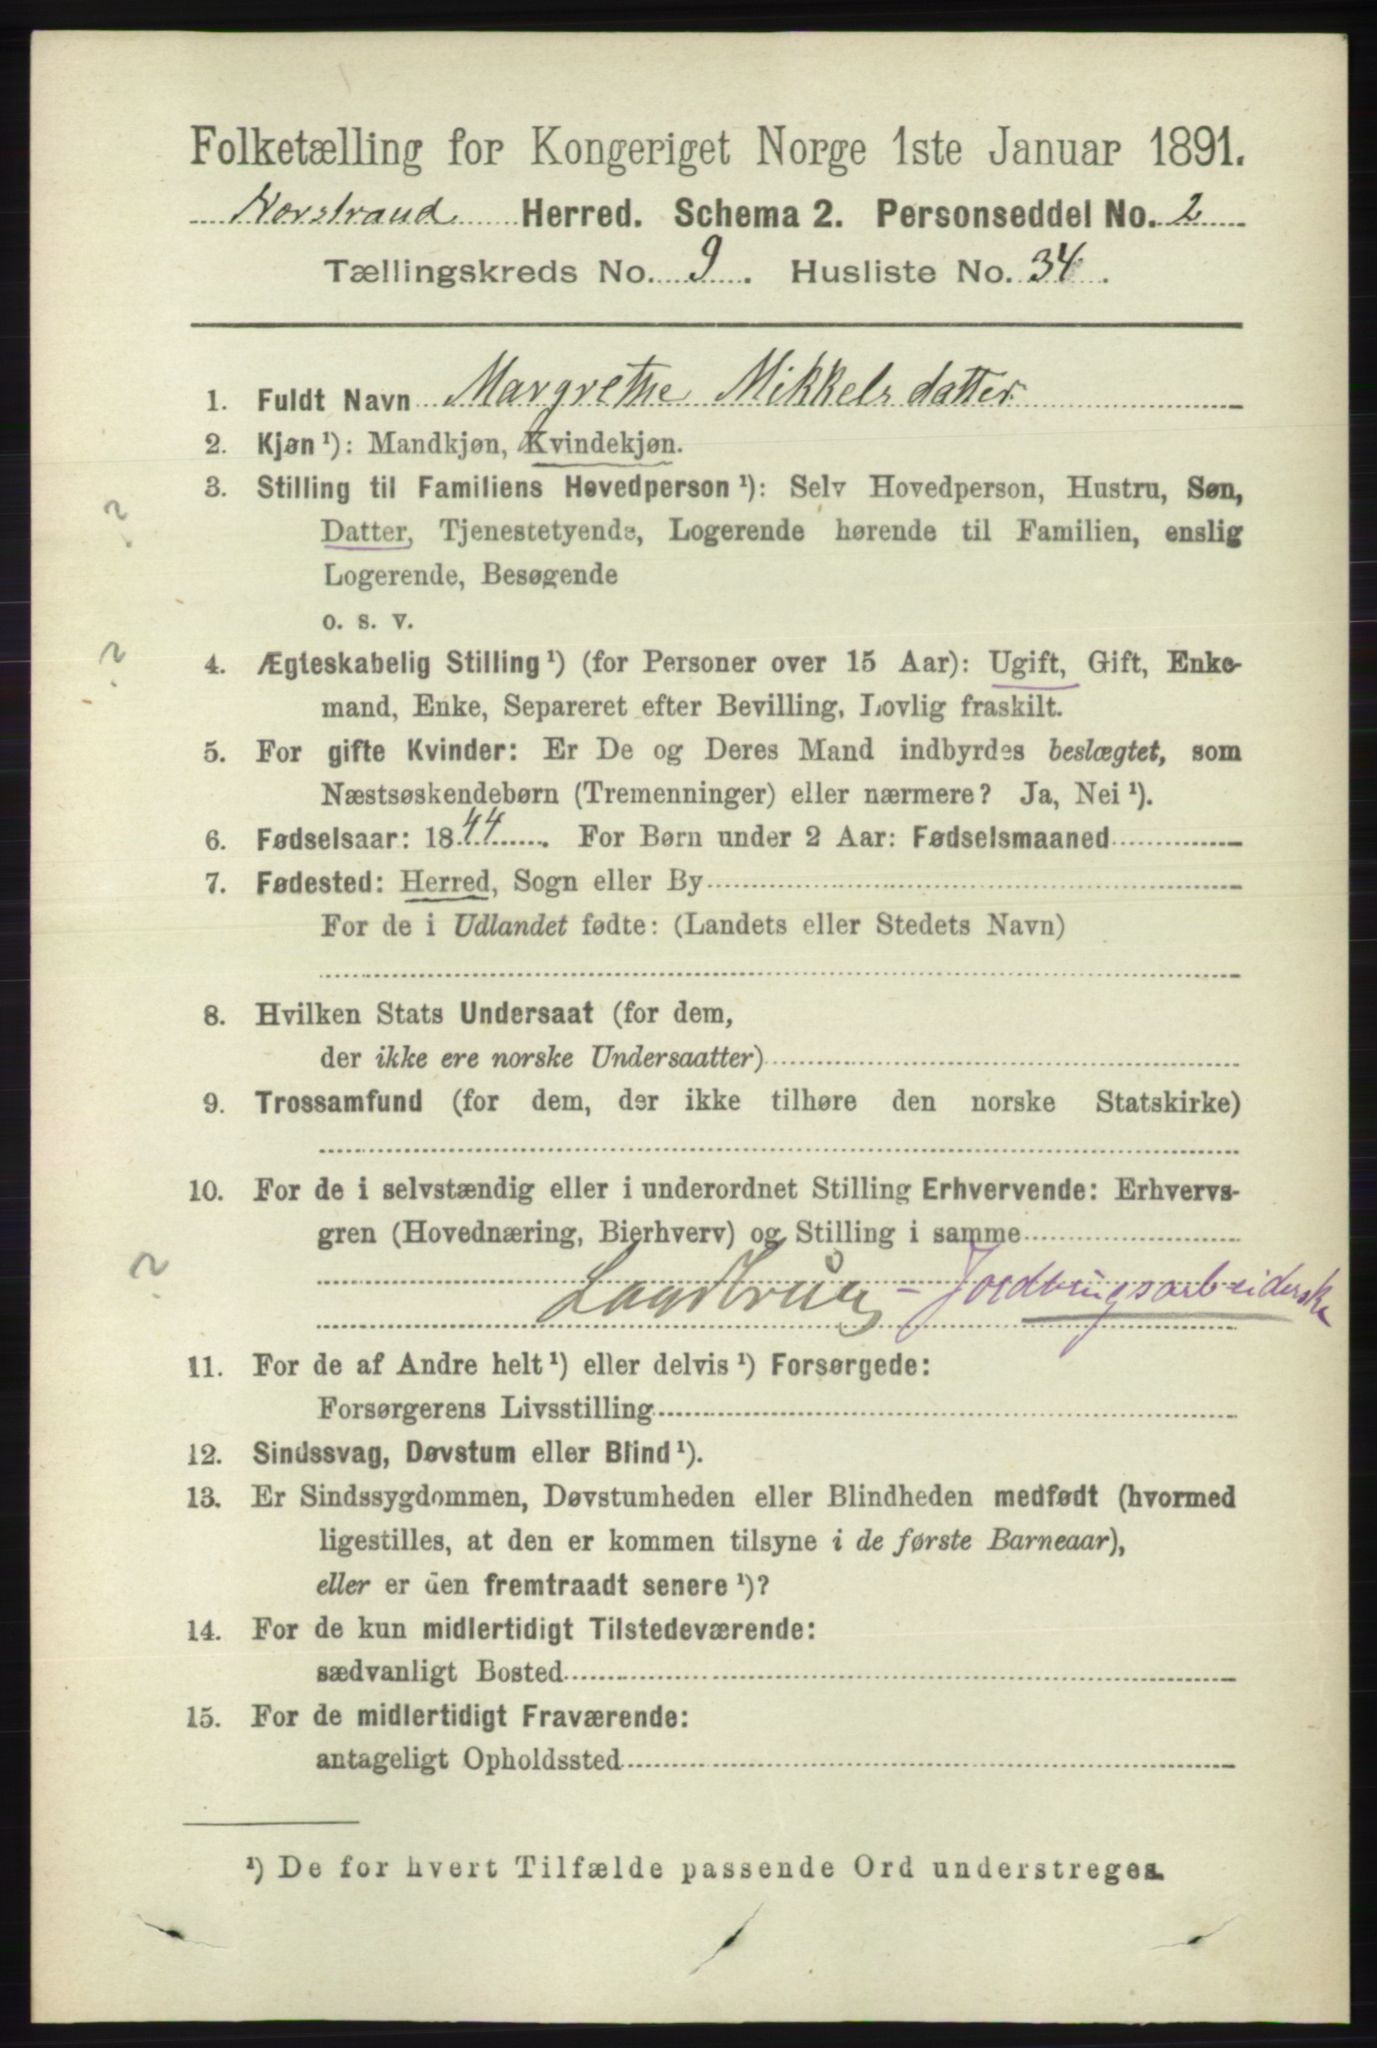 Folketælling for Kongeriget Norge 1ste Januar 1891.
Norstrand Herred. Schema 2. Personseddel No. 2
Tællingskreds No. 9. Husliste No. 34.
1. Fuldt Navn Margrethe Mikkelsdatter
2. Kjøn¹): Mandkjøn, Kvindekjøn.
3. Stilling til Familiens Hovedperson¹): Selv Hovedperson, Hustru, Søn,
? Datter, Tjenestetyende, Logerende hørende til Familien, enslig
Logerende, Besøgende
o. s. v.
? 4. Ægteskabelig Stilling¹) (for Personer over 15 Aar): Ugift, Gift, Enke-
mand, Enke, Separeret efter Bevilling, Lovlig fraskilt.
5. For gifte Kvinder: Er De og Deres Mand indbyrdes beslægtet, som
Næstsøskendebørn (Tremenninger) eller nærmere? Ja, Nei¹).
6. Fødselsaar: 1844. For Børn under 2 Aar: Fødselsmaaned
7. Fødested: Herred, Sogn eller By
For de i Udlandet fødte: (Landets eller Stedets Navn)
8. Hvilken Stats Undersaat (for dem,
der ikke ere norske Undersaatter)
9. Trossamfund (for dem, der ikke tilhøre den norske Statskirke)
10. For de i selvstændig eller i underordnet Stilling Erhvervende: Erhvervs-
gren (Hovednæring, Bierhverv) og Stilling i samme
? - Jordbrugsarbeiderske
11. For de af Andre helt¹) eller delvis¹) Forsørgede:
Forsørgerens Livsstilling
12. Sindssvag, Døvstum eller Blind¹).
13. Er Sindssygdommen, Døvstumheden eller Blindheden medfødt (hvormed
ligestilles, at den er kommen tilsyne i de første Barneaar),
eller er den fremtraadt senere¹)?
14. For de kun midlertidigt Tilstedeværende:
sædvanligt Bosted
15. For de midlertidigt Fraværende:
antageligt Opholdssted
¹) De for hvert Tilfælde passende Ord understreges.